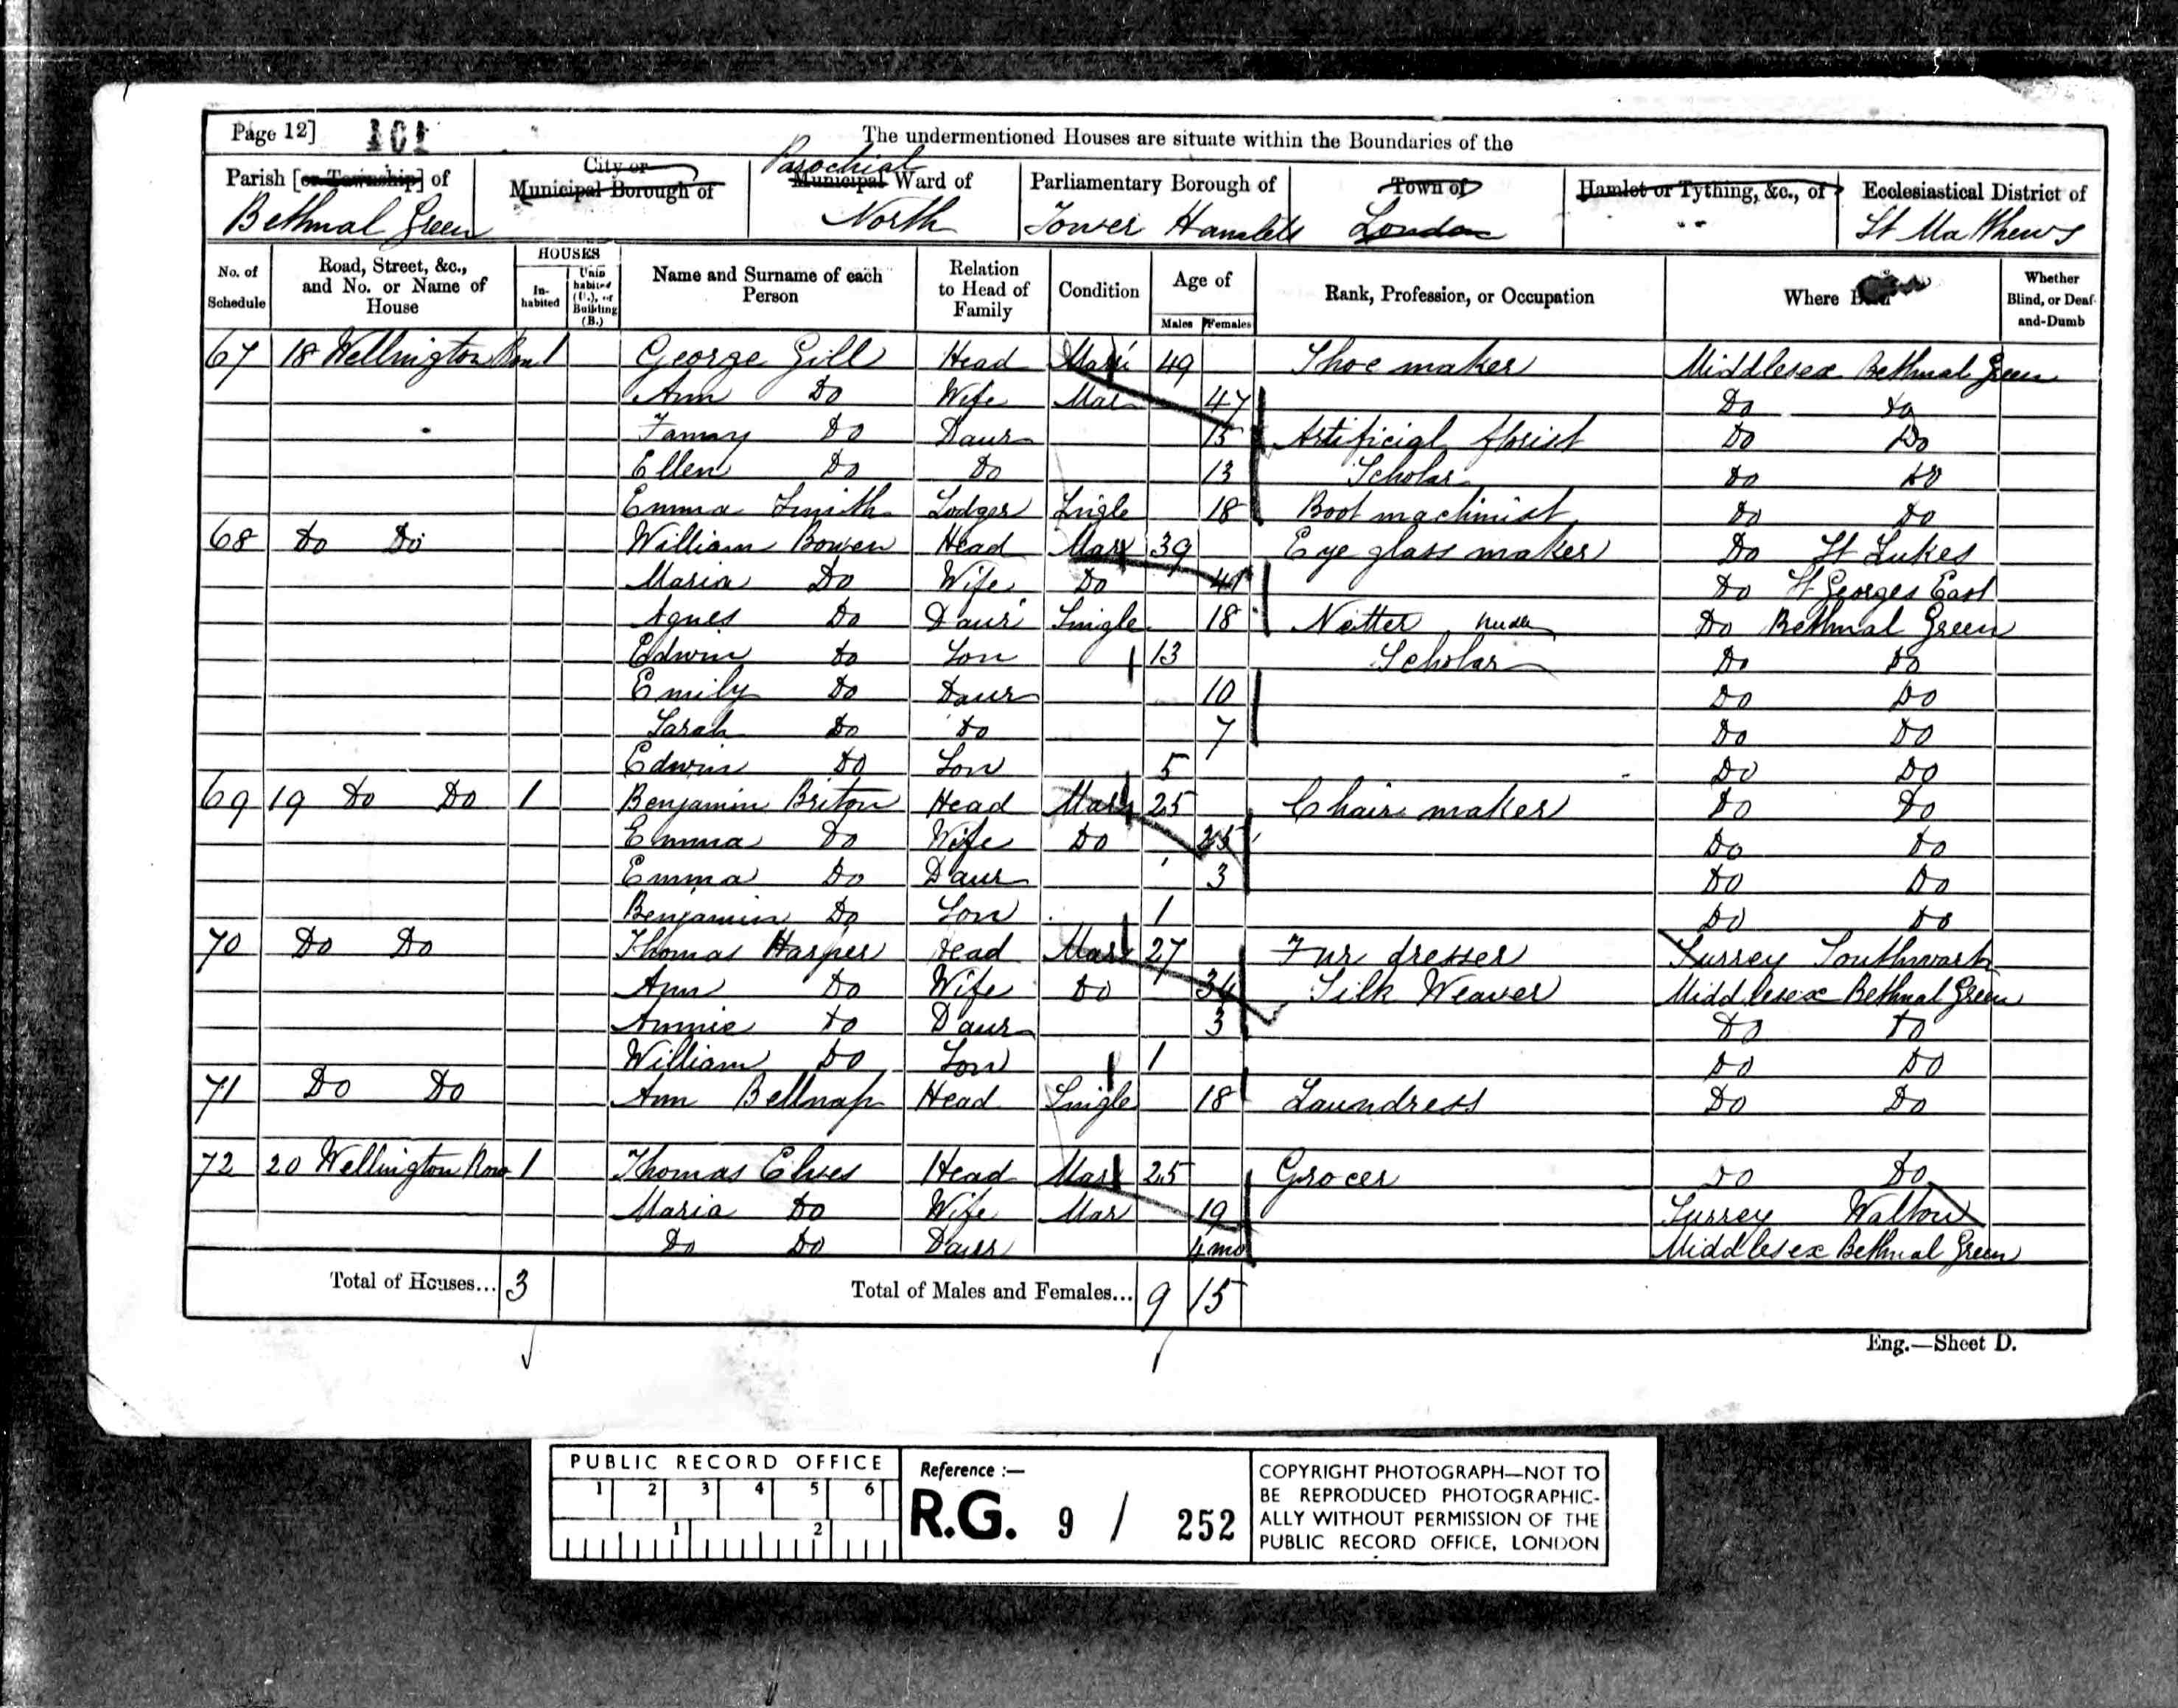 Page 12] 101
The undermentioned Houses are situate within the Boundaries of the
Parish [or Township] of Bethnal Green
City or Municipal Borough of
Parochial Municipal Ward of North
Parliamentary Borough of Tower Hamlets
Town of London
Hamlet or Tything, &c., of "
Ecclesiastical District of St Matthews
No. of Schedule
Road, Street, &c., and No. or Name of House
HOUSES
In-habited
Unin habited (U.), or Building (B.)
Name and Surname of each Person
Relation to Head of Family
Condition
Age of
Males Females
Rank, Profession, or Occupation
Where
Whether Blind, or Deaf-and-Dumb
67 18 Wellington Row 1 George Gill Head Mar 49 Shoe maker Middlesex Bethnal Green
Ann Do Wife Mar 47 Do Do
Fanny Do Daur 15 Artificial florist Do Do
Ellen Do Do 13 Scholar Do Do
Emma Smith Lodger Single 18 Boot machinist Do Do
68 Do Do William Bowen Head Mar 39 Eye glass maker Do St Lukes
Maria Do Wife Do 41 Do St Georges East
Agnes Do Daur Single 18 Netter Do Bethnal Green
Edwin Do Son 13 Scholar Do Do
Emily Do Daur 10 Do Do
Sarah Do Do 7 Do Do
Edwin Do Son 5 Do Do
69 19 Do Do 1 Benjamin Briton Head Mar 25 Chair maker Do Do
Emma Do Wife Do 25 Do Do
Emma Do Daur 3 Do Do
Benjamin Do Son 1 Do Do
70 Do Do Thomas Harper Head Mar 27 Fur dresser Surrey Southwark
Ann Do Wife Do 34 Silk Weaver Middlesex Bethnal Green
Annie Do Daur 3 Do Do
William Do Son 1 Do Do
71 Do Do Ann Bellnap Head Single 18 Laundress Do Do
72 20 Wellington Row 1 Thomas Elves Head Mar 25 Grocer Do Do
Maria Do Wife Mar 19 Surrey Walton
Do Do Daur 4 mo Middlesex Bethnal Green
Total of Houses... 3 Total of Males and Females... 9 15
Eng.—Sheet D.
PUBLIC RECORD OFFICE
1 2 3 4 5 6
1 2
Reference :—
R.G. 9 / 252
COPYRIGHT PHOTOGRAPH—NOT TO
BE REPRODUCED PHOTOGRAPHIC-
ALLY WITHOUT PERMISSION OF THE
PUBLIC RECORD OFFICE, LONDON